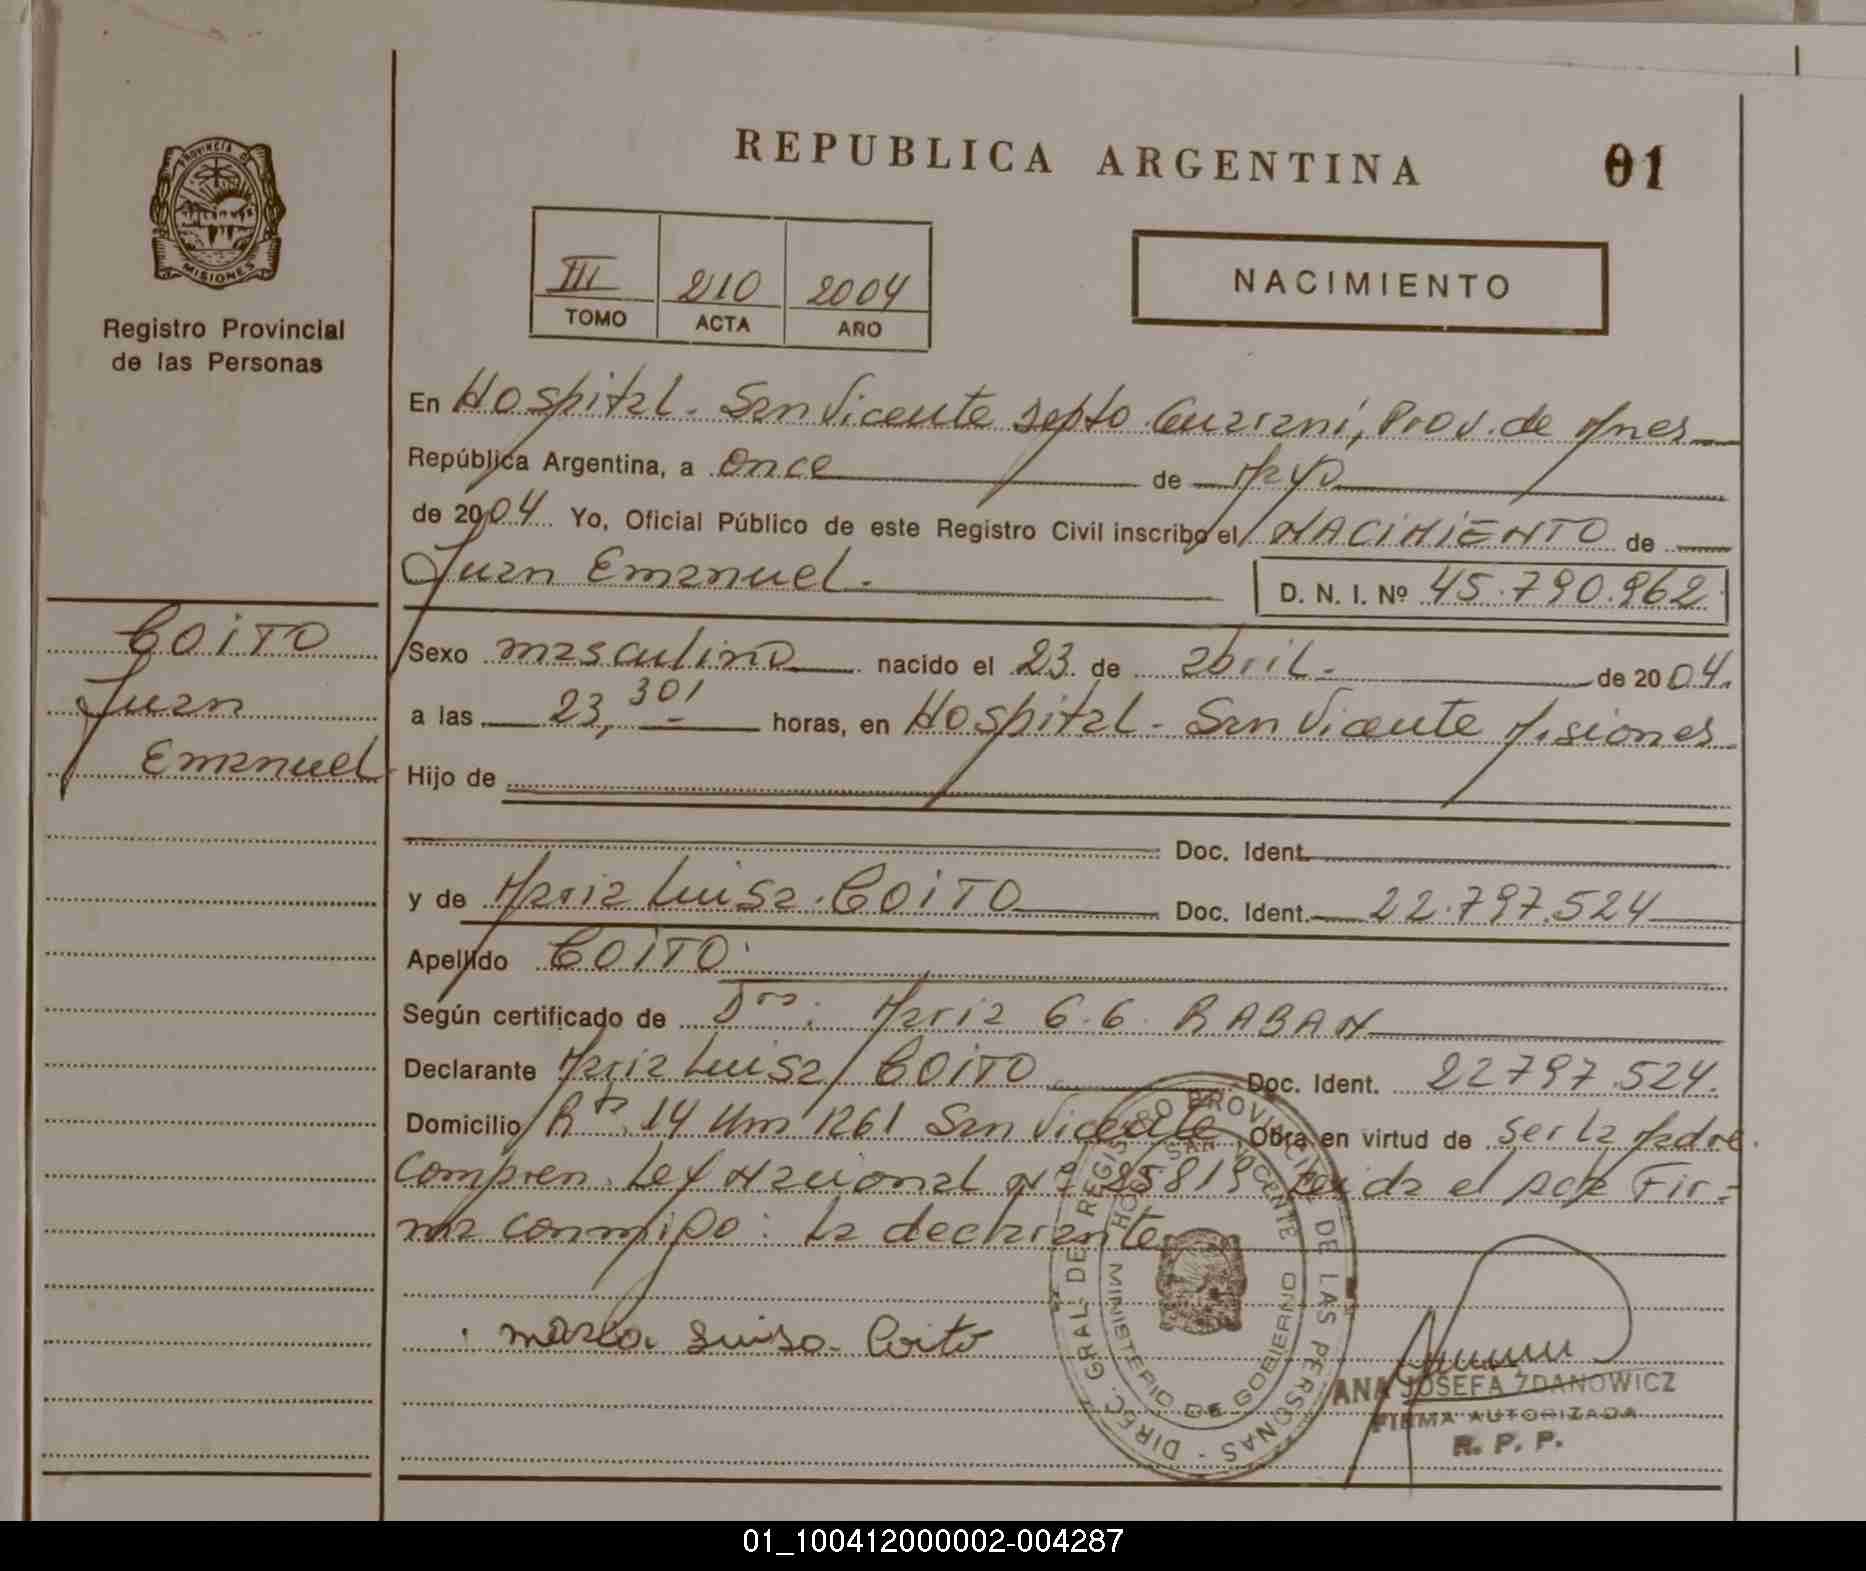 REPUBLICA ARGENTINA
01
PROVINCIA DE
MISIONES
Registro Provincial
de las Personas
III 210 2004
TOMO ACTA AÑO
NACIMIENTO
En Hospital - San Vicente Depto Guarani, Prov. de Mnes
República Argentina, a once de Mayo
de 2004 Yo, Oficial Público de este Registro Civil inscribo el NACIMIENTO de
Juan Emanuel. D. N. I. Nº 45.790.962
COITO
Juan
Emanuel
Sexo masculino nacido el 23 de abril de 2004.
a las 23,30 horas, en Hospital - San Vicente Misiones
Hijo de
Doc. Ident.
y de Maria Luisa COITO Doc. Ident. 22.797.524
Apellido COITO
Según certificado de Dra: Maria G. G. RABAN
Declarante Maria Luisa COITO Doc. Ident. 22797.524.
Domicilio Rta. 14 Km 1261 San Vicente Obra en virtud de ser la Madre
Compren. Ley Nacional Nº 25819 Leida el Acta Fir-
ma conmigo: la declarante
Maria Luisa Coito
DIREC. GRAL. DE REGISTRO PROVINCIAL DE LAS PERSONAS
MINISTERIO DE GOBIERNO
SAN VICENTE
ANA JOSEFA ZDANOWICZ
FIRMA AUTORIZADA
R. P. P.
01_100412000002-004287